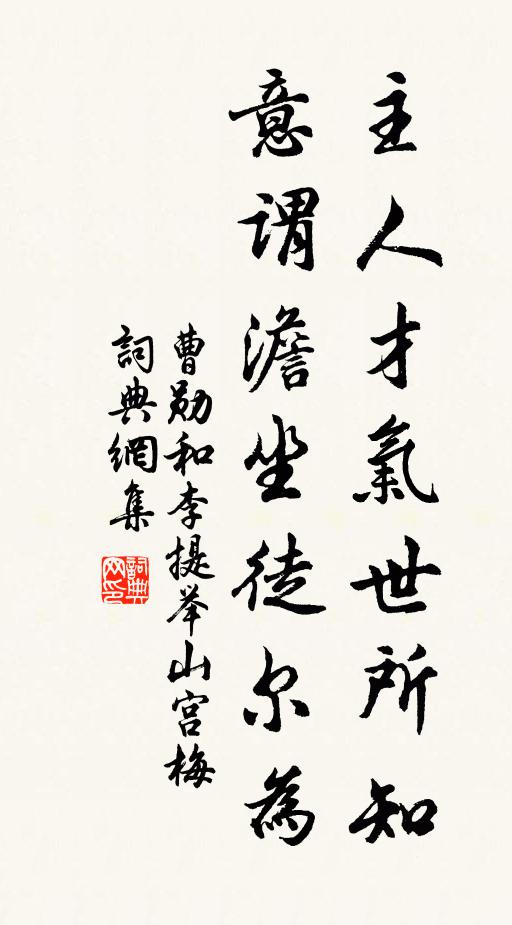 主人才氣世所知
意謂澹坐徒尔為
曹勛和李提举山宮梅
詞典網集
詞典网印